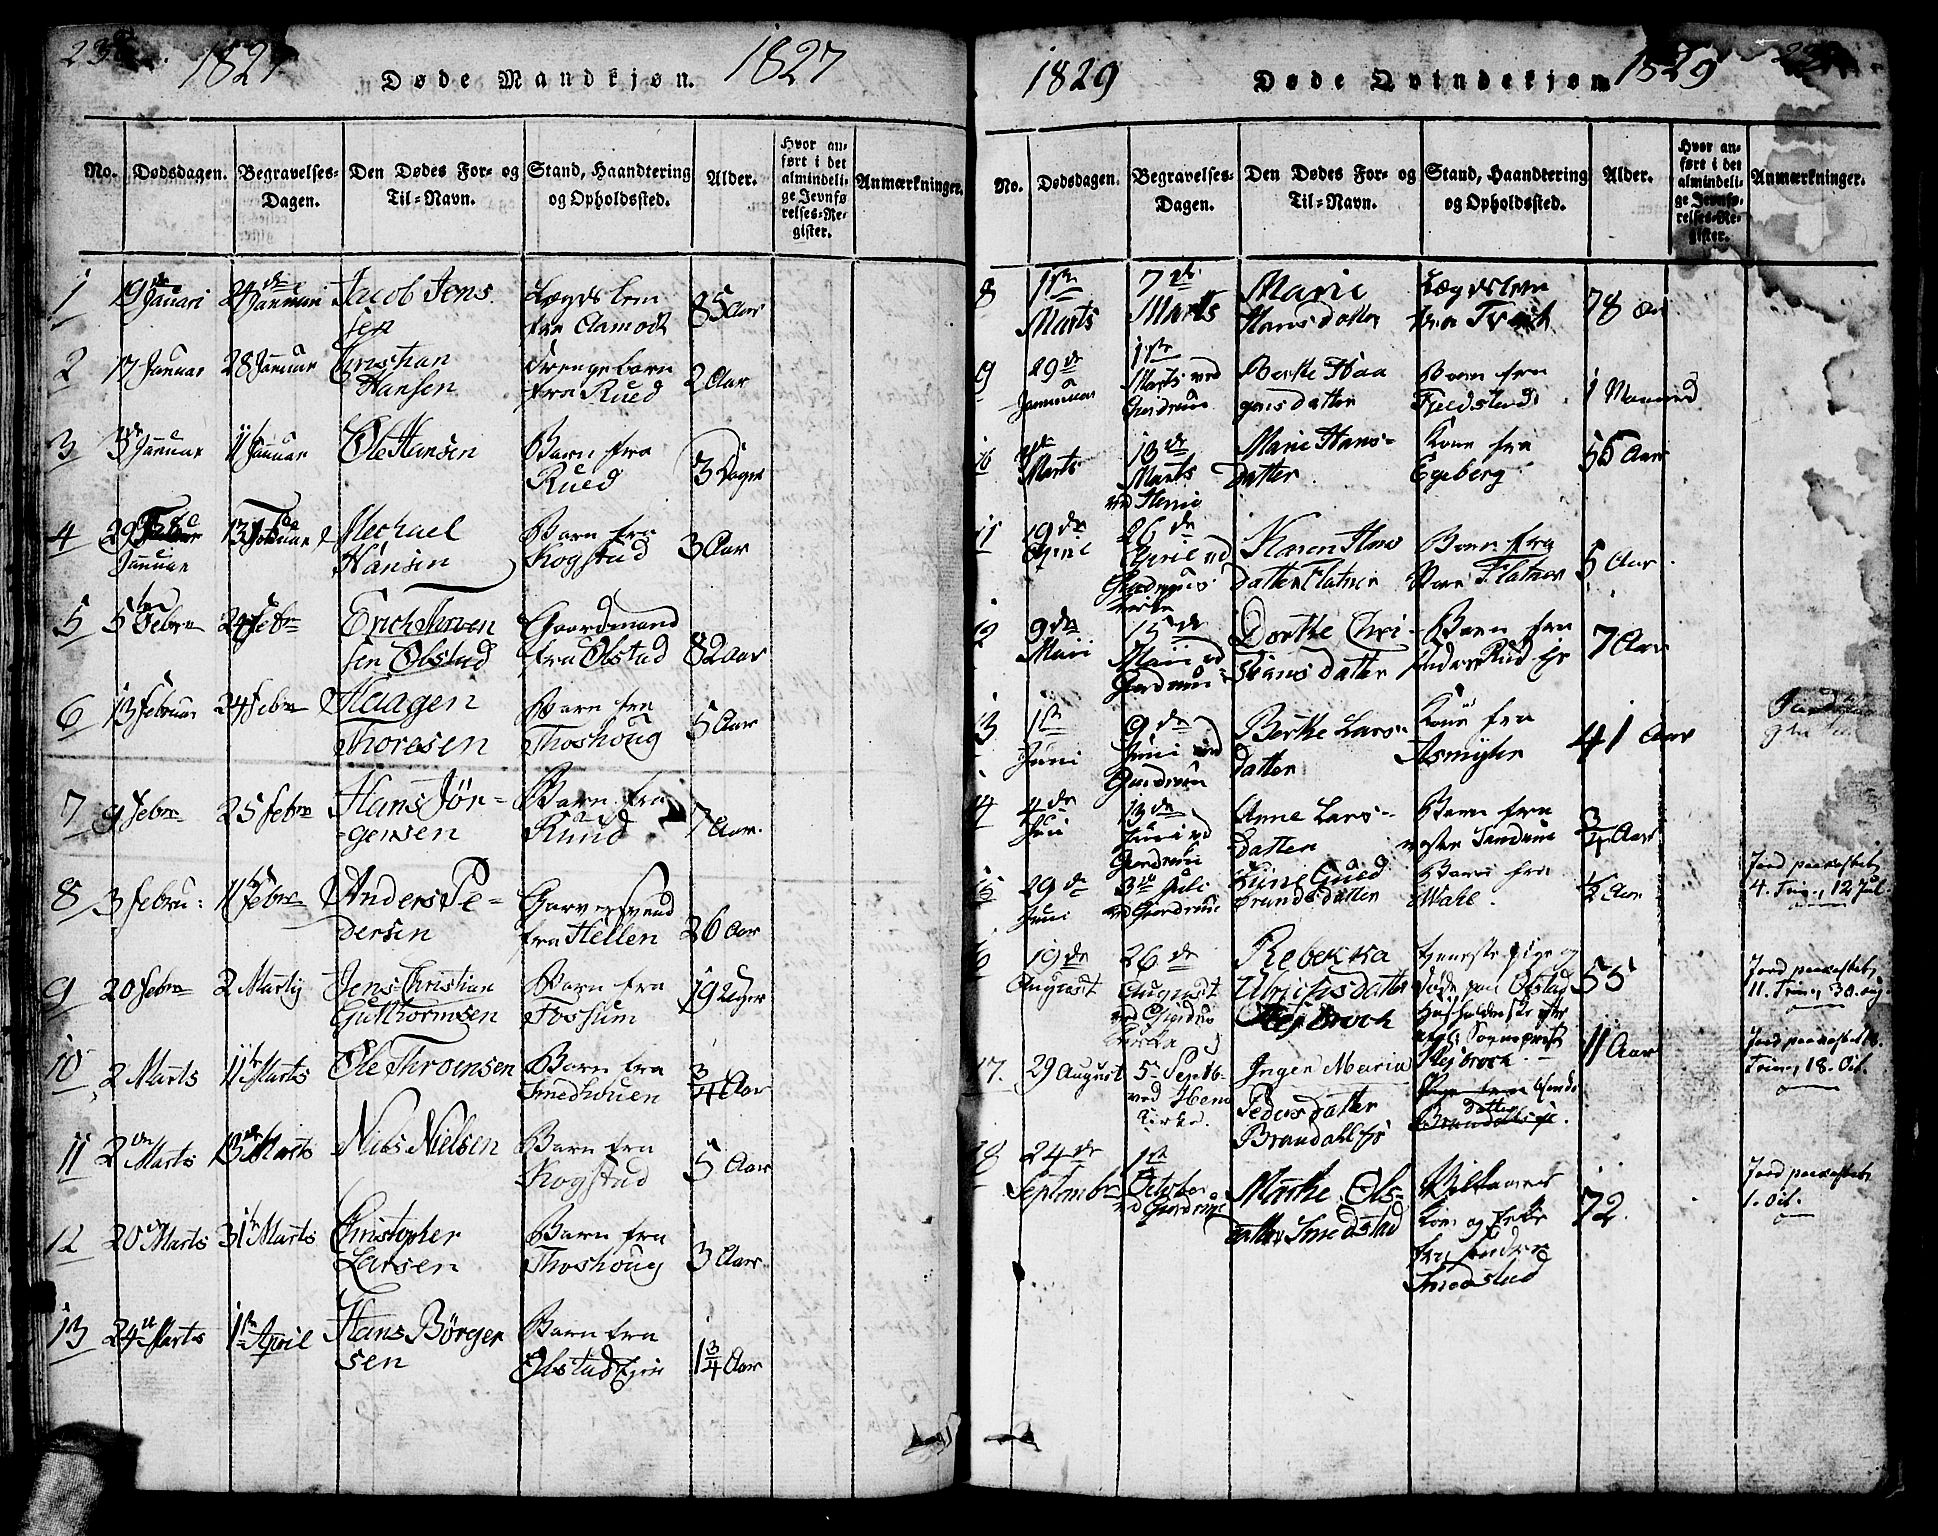 1827
Døde Mandkjøn.
1827
No.
Dødsdagen.
Begravelses-
Dagen.
Den Dødes For- og
Til-Navn.
Stand, Haandtering
og Opholdssted.
Alder.
Hvor an-
ført i det
almindeli-
ge Jevnfø
relses-Re-
gister.
Anmærkninger.
1
19de Januari
24de Januari
Jacob Jens
sen
Lægdslem
fra Aamodt
85 Aar
2
17 Januar
28 Januar
Christian
Hansen
Drengebarn
fra Rued
2 Aar
3
3de Januar
11te Januar
Ole Hansen
Barn fra
Rued
3 Dager
4
29de
Januar
13de Februar
Mechael
Hansen
Barn fra
Kogstad
3 Aar
5
5te Febru
24 Febr
Erich Throen
sen Ølstad
Gaardmand
fra Ølstad
82 Aar
6
13 Februar
24 Febru
Haagen
Thoresen
Barn fra
Thoshoug
5 Aar
7
9 Febru
25 Febru
Hans Jør-
gensen
Barn fra
Ruud
7 Aar.
8
3 Febru:
11te Febru
Anders Pe-
dersen
Garversvend
fra Hellen
26 Aar
9
20 Febru
2 Martij
Jens Christian
Guthormsen
Barn fra
Fossum
19 Uger
10
2 Marts
11te Marts
Ole Throensen
Barn fra
Smedhouen
3/4 Aar
11
2den Marts
13de Marts
Niels Nielsen
Barn fra
Kogstad
5 Aar
12
20de Marts
31te Marts
Christopher
Larsen
Barn fra
Thoshoug
3 Aar
13
24de Marts
1ste April
Hans Børger
sen
Barn fra
Ølstad Eje
1 3/4 Aar
1829
Døde Qvindekjøn
1829
No.
Dødsdagen.
Begravelses-
Dagen.
Den Dødes For- og
Til-Navn.
Stand, Haandtering
og Opholdssted.
Alder.
Hvor an-
ført i det
almindeli-
ge Jevnfø
relses-Re-
gister.
Anmærkninger.
8
1ste
Marts
7de
Marts
Marie
Hansdatter
Lægdslem
fra
78 Aar
9
29de
Januar
1ste
Marts ved
Gierdrum
Berthe Haa
gensdatter
Barn fra
Fieldstad
1 Maaned
Marts
13de
Marts
ved Heni
Marie Hans-
datter
Kone fra
Egeberg
55 Aar
11
19de
April
26de
April ved
Gierdrums
Kirke
Karen Hans
datter Flatner
Barn fra
Flatner
5 Aar
12
9de
Maii
15de
Maii ved
Gierdrum
Dorthe Chri-
stiansdatter
Barn fra
7 Aar
13
1ste
Juni
9de
Juni ved
Gierdrum
Berthe Lars-
datter
Kone fra
Asmyhr
41 Aar
14
4de
Juni
13de
Juni ved
Gierdrum
Anne Lars-
datter
Barn fra
3/4 Aar
15
29de
Juni
3die Juli
ved Gierdrum
Gud
brandsdatter
Barn fra
Wahl.
1/2 Aar
Jord paakastet,
4. Trin., 12 Jul.
19de
August
26de
August
ved Gierdrum
Kirke
Rebekka
Ulrichsdatter
Stejbrock
tjenestepige og
døde paa Ølstad
Huusholderske efter
Sogneprest
Stejbrock.
55
Jord paakastet,
11. Trin., 30. aug.
17.
29 August
5 Septb.
ved Heni
Kirke.
Inger Maria
Pedersdatter
Brandahl Eje
datter
11 Aar
Jord paakastet 18.
Trin., 18. Oct.
18
24de
September
1ste
October
ved Gierdrum
Marthe Ols-
datter Smedstad
Kone og Enke
fra
Smedstad
72.
Jord paakastet,
1. Oct.